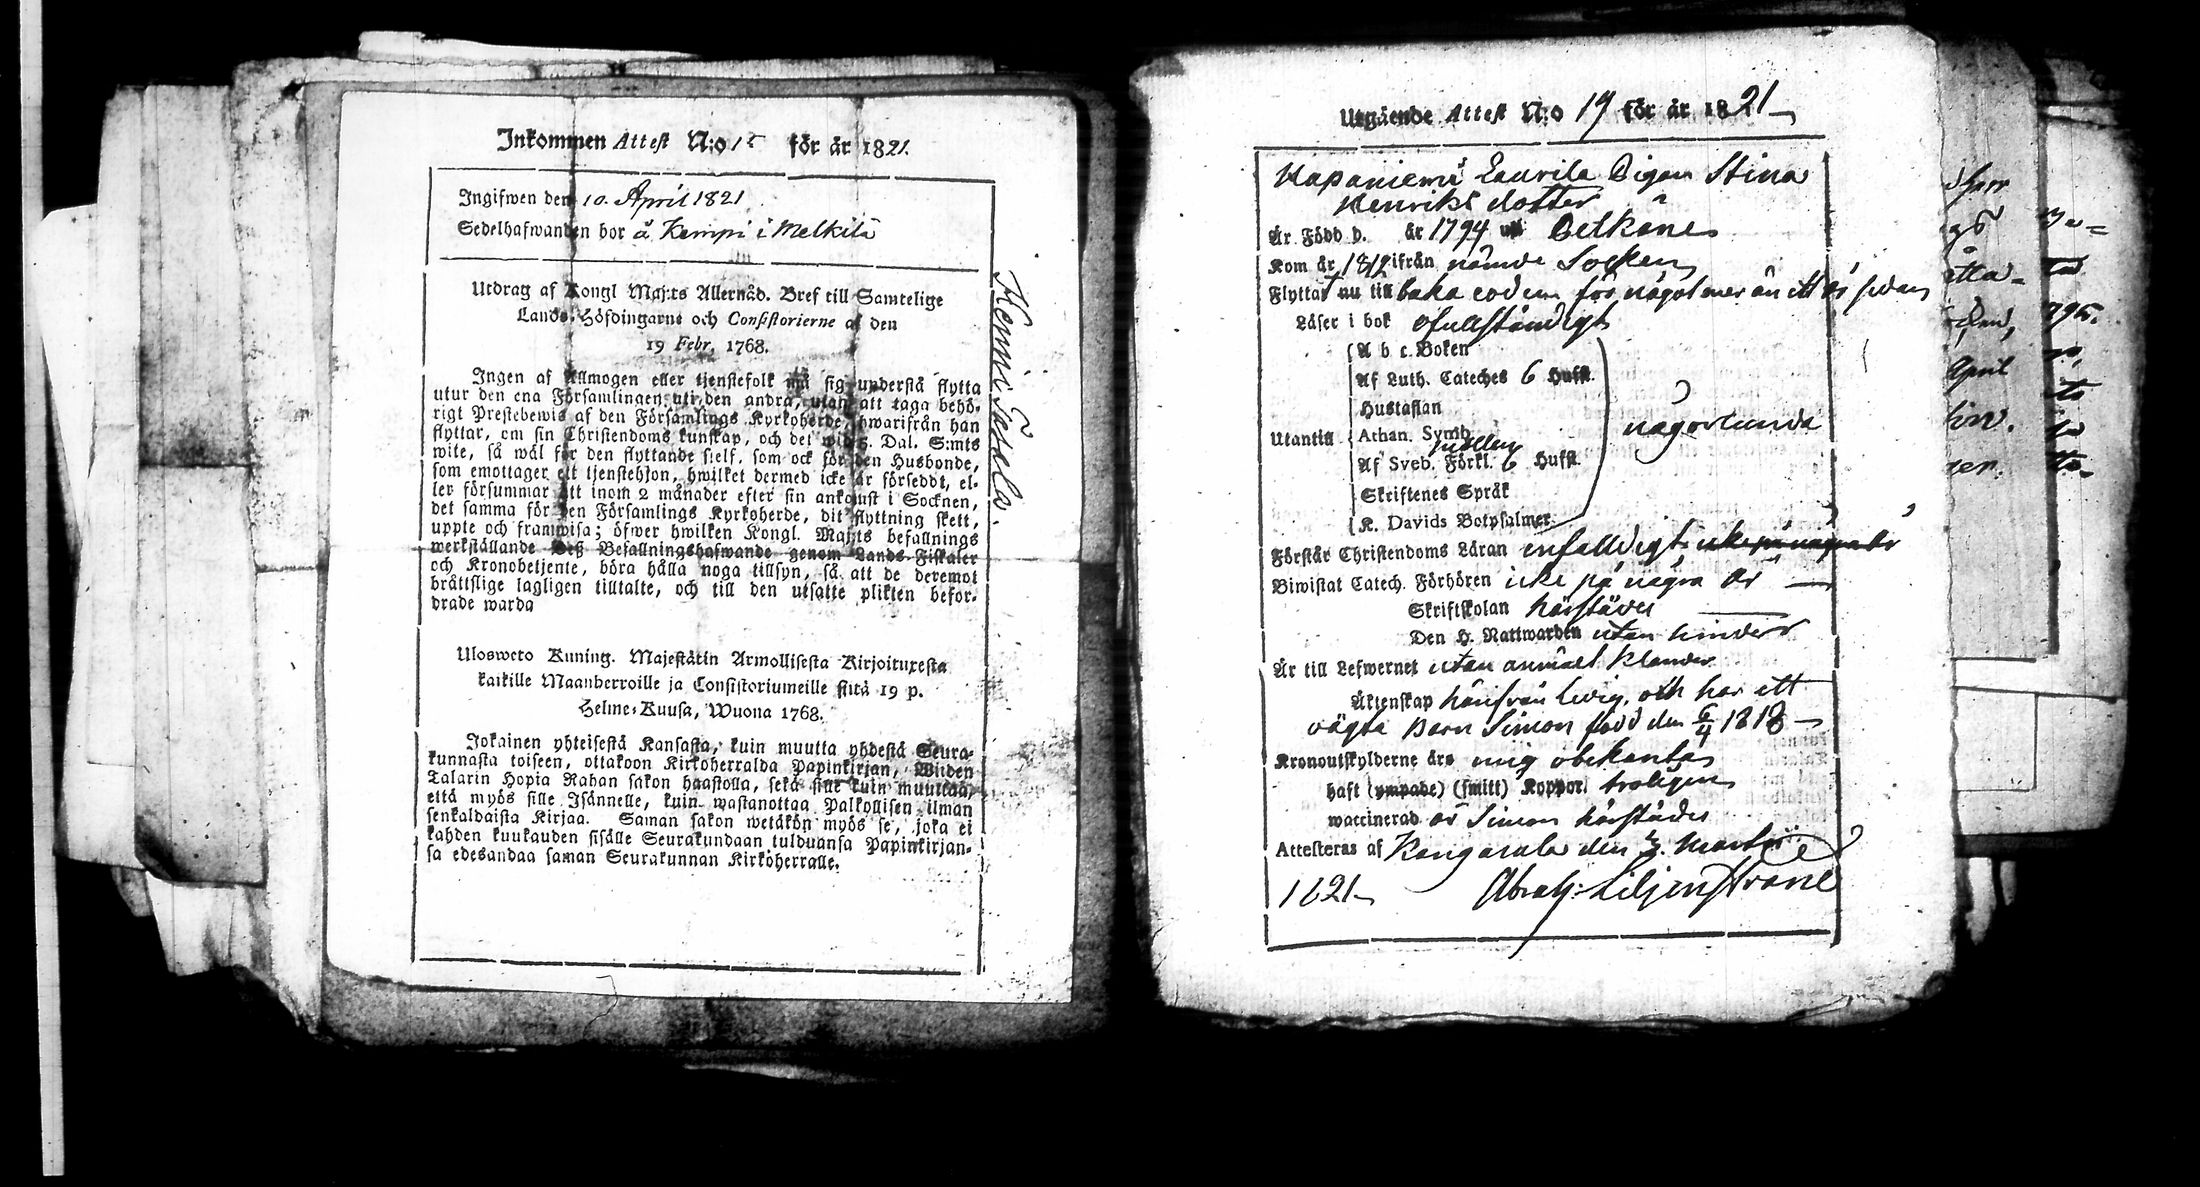 Inkommen Attest N:o 15 för år 1821.
Ingifwen den 10. April 1821
Sedelhafwanden bor å Kempi i Melkilä
Utdrag af Kongl Maj:ts Allernåd. Bref till Samtelige
Lands-Höfdingarne och Consistorierne af den
19 Febr. 1768.
Ingen af Allmogen eller tjenstefolk må sig understå flytta
utur den ena Församlingen uti den andra, utan att taga behö-
rigt Prestebewis af den Församlings Kyrkoherde, hwarifrån han
flyttar, om sin Christendoms kunskap, och det wid 3. Dal. S:mts
wite, så wäl för den flyttande sielf, som ock för den Husbonde,
som emottager ett tjenstehjon, hwilket dermed icke är förseddt, el-
ler försummar att inom 2 månader efter sin ankomst i Socknen,
det samma för den Församlings Kyrkoherde, dit flyttning skett,
uppte och framwisa; öfwer hwilken Kongl. Maj:ts befallnings
werkställande Deß Befallningshafwande genom Lands-Fiskaler
och Kronobetjente, böra hålla noga tillsyn, så att de deremot
bråttslige lagligen tilltalte, och till den utsatte plikten befor-
drade warda
Ulosweto Kuning. Majestätin Armollisesta Kirjoituxesta
kaikille Maanherroille ja Consistoriumeille siitä 19 p.
Helme-Kuusa, Wuona 1768.
Jokainen yhteisestä Kansasta, kuin muutta yhdestä Seura-
kunnasta toiseen, ottakoon Kirkoherralda Papinkirjan, Wiiden
Talarin Hopia Rahan sakon haastolla, sekä sille kuin muuttaa,
että myös sille Isännelle, kuin wastanottaa Palkollisen ilman
senkaldaista Kirjaa. Saman sakon wetäkön myös se, joka ei
kahden kuukauden sisälle Seurakundaan tulduansa Papinkirjan-
sa edesandaa saman Seurakunnan Kirkoherralle.
Utgående Attest N:o 19 för år 1821
Hapaniemi Laurila Pigan Stina
Henriks dotter
Är Född d. år 1794 uti Pelkäne
Kom år 1812 ifrån nämde Socken
Flyttat nu till baka eodem för något mer än ett år sedan
Läser i bok ofullständigt
A b c. Boken
Af Luth. Cateches 6 Hufst.
Hustaflan
Utantill Athan. Symb.
Af Sveb. Förkl. 6 Hufst.
Skriftenes Språk
K. Davids Botpsalmer
någorlunda
Förstår Christendoms Läran enfaldigt icke på några år
Biwistat Catech. Förhören icke på några år
Skriftskolan härstädes
Den H. Nattwarden utan hinder
Är till Lefwernet utan anmält klander
Äktenskap härifrån ledig, och har ett
oägta Barn Simon född den 6/4 1818
Kronoutskylderne äro mig obekanta
haft (ympade) (smitt) Koppor. troligen
waccinerad är Simon härstädes
Attesteras af Kangasala den Martii
1821 Abrah: Liljenstrand